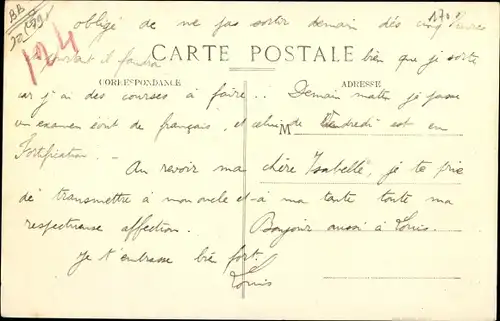 BB
124
1700
obligé de ne pas sortir demain dès cinq heures
pourtant il faudra bien que je sorte
CARTE POSTALE
CORRESPONDANCE
ADRESSE
car j'ai des courses à faire... Demain matin je passe
un examen écrit de français, et celui de Vendredi est en
M
Fortification. –
Au revoir ma chère Isabelle, je te prie
de transmettre à mon oncle et à ma tante toute ma
respectueuse affection. Bonjour aussi à Louis.
Je t'embrasse bien fort.
Louis